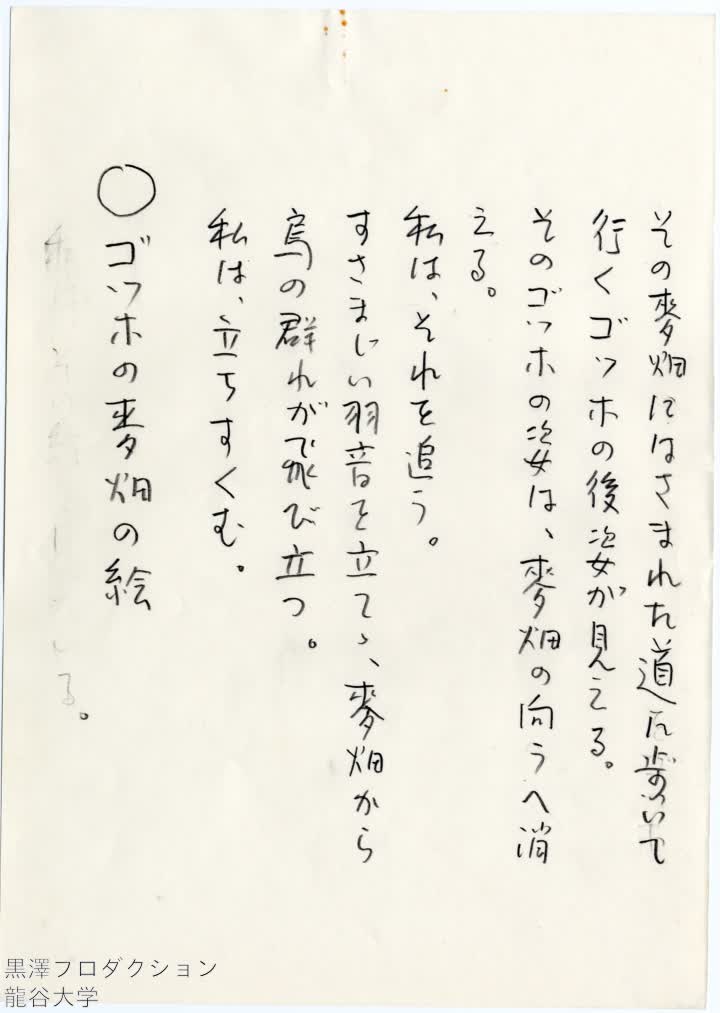 その麥畑にはさまれた道を歩いて
行くゴッホの後姿が見える。
そのゴッホの姿は、麥畑の向うへ消
える。
私は、それを追う。
すさまじい羽音を立てゝ、麥畑から
烏の群れが飛び立つ。
私は、立ちすくむ。
○ゴッホの麥畑の絵
る。
黒澤プロダクション
龍谷大学